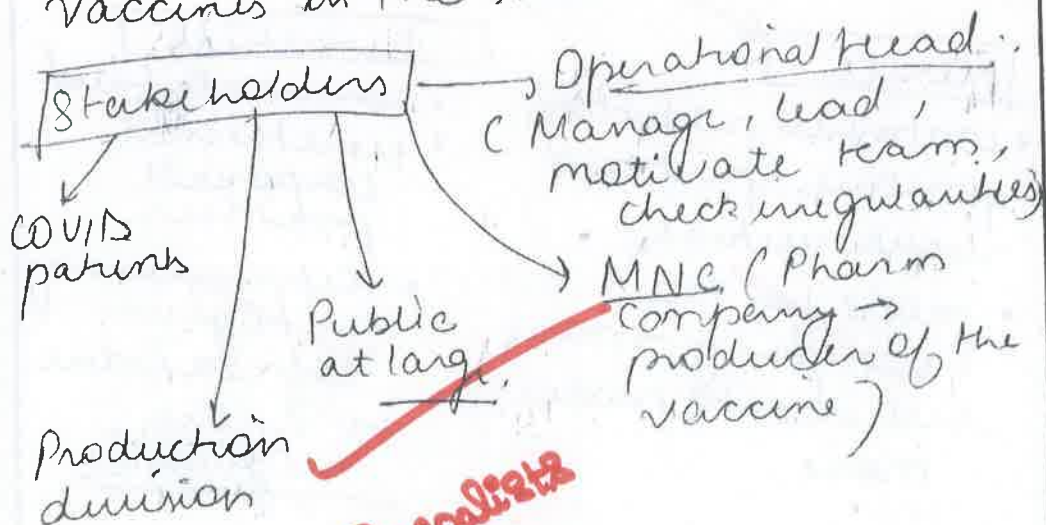 vaccines in the
Stakeholders
Operational Head.
( Manage, lead,
motivate team,
check irregularities)
COVID
patients
Public
at large.
MNC ( Pharm
company →
producer of the
vaccine )
Production
division